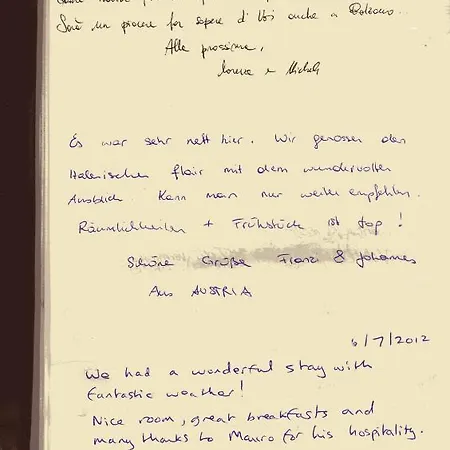 Sarà un piacere far sapere di Voi anche a Bolzano...
Alla prossima,
Lorenza e Michele
Es war sehr nett hier. Wir genossen den
Italienischen flair mit dem wundervollen
Ausblick. Kann man nur weiter empfehlen.
Räumlichkeiten + Frühstück ist top!
Schöne Grüße Franzi & Johannes
Aus AUSTRIA
6/7/2012
We had a wonderful stay with
fantastic weather!
Nice room, great breakfasts and
many thanks to Mauro for his hospitality.